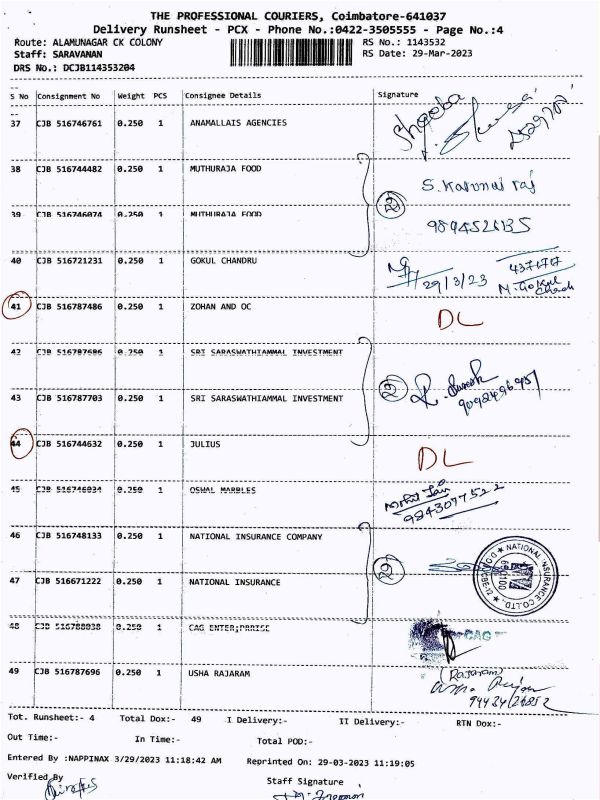 THE PROFESSIONAL COURIERS, Coimbatore-641037
Delivery Runsheet - PCX - Phone No.:0422-3505555 - Page No.:4
Route: ALAMUNAGAR CK COLONY RS No.: 1143532
Staff: SARAVANAN RS Date: 29-Mar-2023
DRS No.: DCJB114353204
S No Consignment No Weight PCS Consignee Details Signature
37 CJB 516746761 0.250 1 ANAMALLAIS AGENCIES Shobha
38 CJB 516744482 0.250 1 MUTHURAJA FOOD
S. Karunai raj
39 CJB 516746074 0.250 1 MUTHURAJA FOOD
40 CJB 516721231 0.250 1 GOKUL CHANDRU
29/3/23 M. Gokul
41 CJB 516787486 0.250 1 ZOHAN AND OC DL
42 CJB 516787686 0.250 1 SRI SARASWATHIAMMAL INVESTMENT
43 CJB 516787703 0.250 1 SRI SARASWATHIAMMAL INVESTMENT
44 CJB 516744632 0.250 1 JULIUS DL
45 CJB 516746034 0.250 1 OSWAL MARBLES
9843077522
46 CJB 516748133 0.250 1 NATIONAL INSURANCE COMPANY
47 CJB 516671222 0.250 1 NATIONAL INSURANCE
NATIONAL INSURANCE CO.LTD.
48 CJB 516788038 0.250 1 CAG ENTER;PRRISE CAG
49 CJB 516787696 0.250 1 USHA RAJARAM (Rajaram)
Tot. Runsheet:- 4 Total Dox:- 49 I Delivery:- II Delivery:- RTN Dox:-
Out Time:- In Time:- Total POD:-
Entered By :NAPPINAX 3/29/2023 11:18:42 AM Reprinted On: 29-03-2023 11:19:05
Verified By Staff Signature